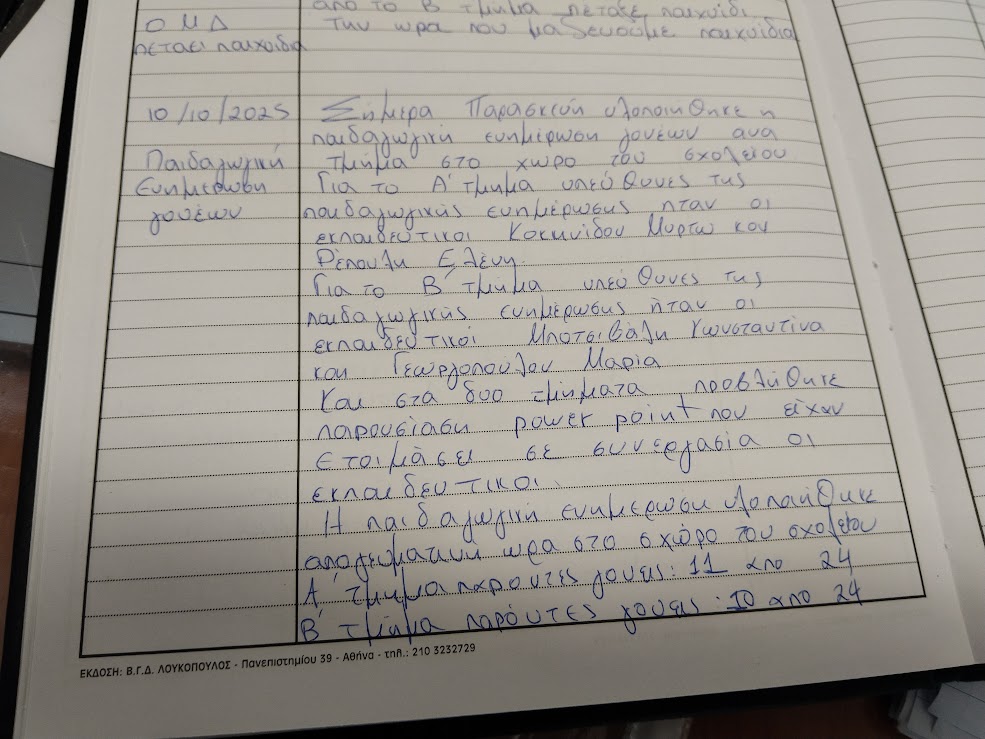 από το Β τμήμα πέταξε παιχνίδι
Ο Μ Δ
την ωρα που μαζευουμε παιχνίδια
πεταει παιχνίδια
10/10/2025
Σήμερα Παρασκευή υλοποιήθηκε η
παιδαγωγική ενημέρωση γονέων ανα
Παιδαγωγική
τμήμα στο χωρο του σχολείου
Ενημερωση
Για το Α' τμημα υπεύθυνες της
γονέων
παιδαγωγικής ενημέρωσης ηταν οι
εκπαιδευτικοι Κοκκινίδου Μυρτω και
Ρέπουλη Ελένη.
Για το Β' τμημα υπεύθυνες της
παιδαγωγικής ενημέρωσης ήταν οι
εκπαιδευτικοί Μποτσιβάλη Κωνσταντίνα
και Γεωργοπούλου Μαρία
Και στα δυο τμήματα προβλήθηκε
παρουσίαση power point που είχαν
ετοιμάσει σε συνεργασία οι
εκπαιδευτικοι.
Η παιδαγωγική ενημερωση υλοποιήθηκε
απογευματινη ωρα στο χώρο του σχολείου
Α' τμημα παροντες γονεις: 11 απο 24
Β' τμημα παρόντες γονεις: 10 απο 24
ΕΚΔΟΣΗ: Β.Γ.Δ. ΛΟΥΚΟΠΟΥΛΟΣ - Πανεπιστημίου 39 - Αθήνα - τηλ.: 210 3232729